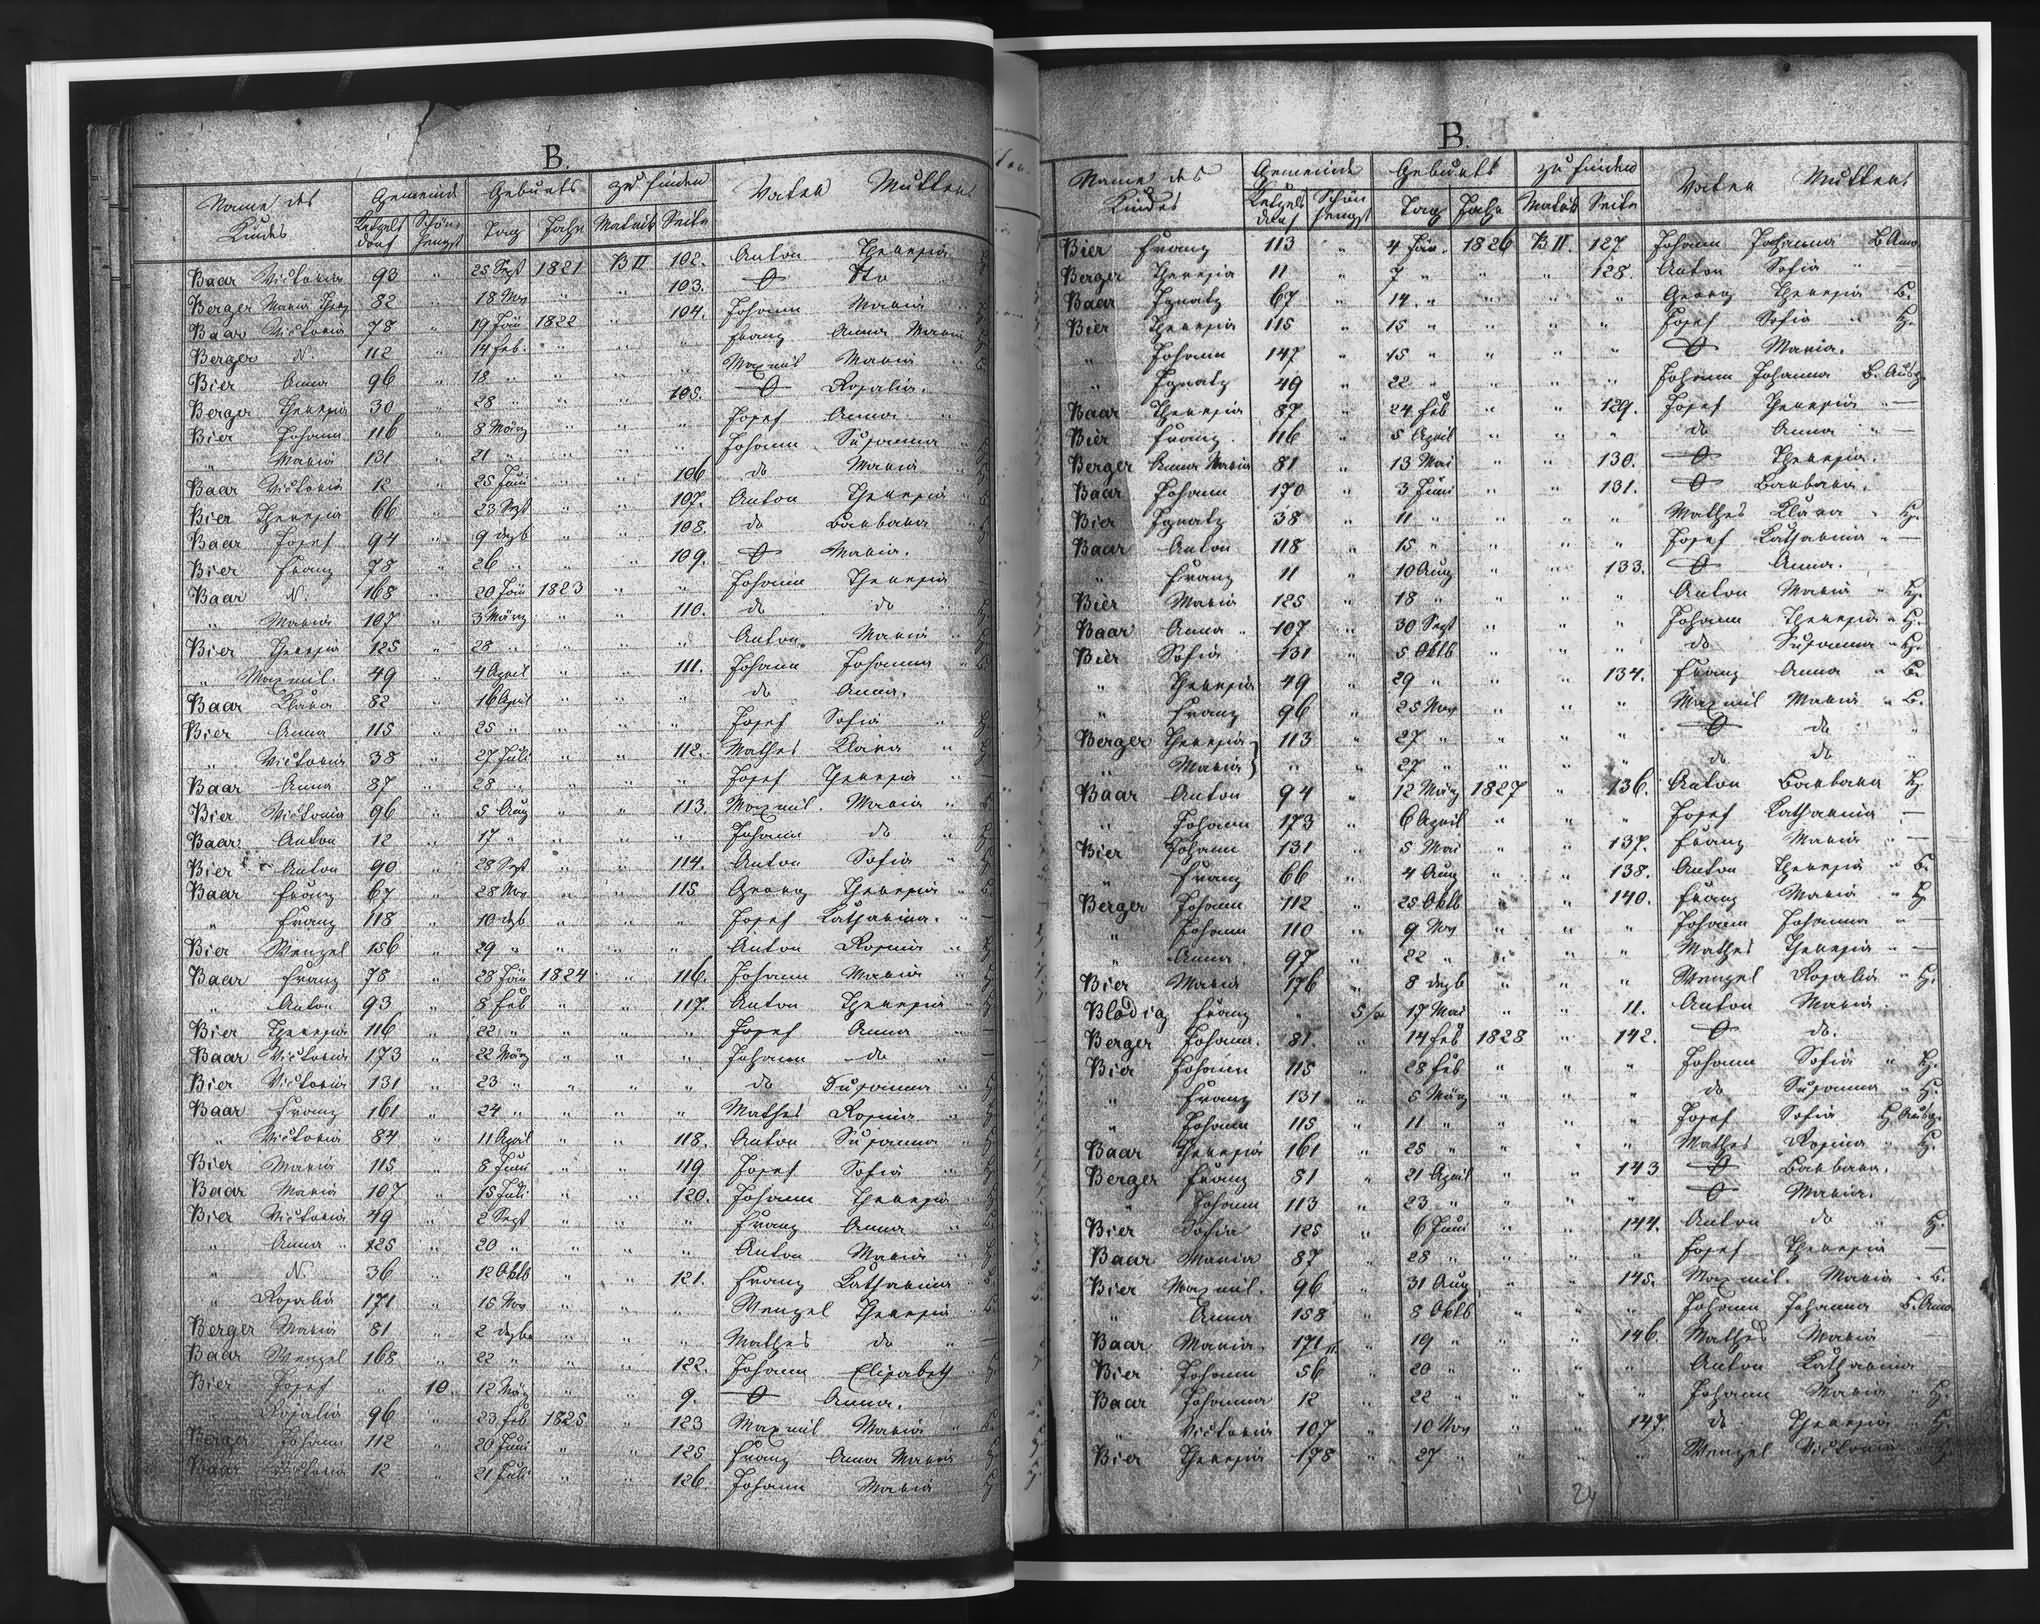 B.
Name des Kindes Gemeinde Geburts zu finden Vater Mutter
Ketzelsdorf Schönhengst Tag Jahr Matrik Seite
Baar Victoria 93 " 25 Sept 1821 B II 102. Anton Theresia
Berger Maria Theres 82 " 18 Nov " " 103. O Tto
Baar Victoria 78 " 19 Jän 1822 " 104. Johann Maria
Berger N. 112 " 14 Feb. " " " Franz Anna Maria
Bier Anna 96 " 18 " " " " Maxmil Maria
Berger Theresia 30 " 28 " " " 105. O Rosalia.
Bier Johann 116 " 8 März " " " Josef Anna
" Maria 131 " 21 " " " " Johann Susanna
Baar Victoria 12 " 25 Juni " " 106 do Maria
Bier Theresia 66 " 23 Sept " " 107. Anton Theresia
Baar Josef 94 " 9 dezb " " 108. do Barbara
Bier Franz 78 " 26 " " " 109. O Maria.
Baar N. 168 " 20 Jän 1823 " " Johann Theresia
" Maria 107 " 3 März " " 110. do do
Bier Theresia 125 " 28 " " " " Anton Maria
" Maxmil. 49 " 4 April " " 111. Johann Johanna
Baar Klara 82 " 16 April " " " do Anna.
Bier Anna 115 " 25 " " " " Josef Sofia
" Victoria 38 " 27 Juli " " 112. Mathes Klara
Baar Anna 87 " 28 " " " " Josef Theresia
Bier Victoria 96 " 5 Aug " " 113. Maxmil. Maria
Baar Anton 12 " 17 " " " " Johann do
Bier Anton 90 " 28 Sept " " 114. Anton Sofia
Baar Franz 67 " 28 Nov " " 115 Georg Theresia
" Franz 118 " 10 dezb " " " Josef Katharina.
Bier Wenzel 156 " 29 " " " " Anton Rosina
Baar Franz 78 " 28 Jän 1824 " 116. Johann Maria
" Anton 93 " 8 Feb " " 117. Anton Theresia
Bier Theresia 116 " 22 " " " " Josef Anna
Baar Victoria 173 " 22 März " " " Johann do
Bier Victoria 131 " 23 " " " " do Susanna
Baar Franz 161 " 24 " " " " Mathes Rosina
" Victoria 84 " 11 April " " 118. Anton Susanna
Bier Maria 115 " 8 Juni " " 119 Josef Sofia
Baar Maria 107 " 15 Juli " " 120. Johann Theresia
Bier Victoria 49 " 2 Sept " " " Franz Anna
" Anna 125 " 20 " " " " Anton Maria
" N. 36 " 12 Oktb " " 121. Franz Katharina
" Rosalia 171 " 15 Nov " " " Wenzel Theresia
Berger Maria 81 " 2 dezbr " " " Mathes do
Baar Wenzel 168 " 22 " " " 122. Johann Elisabeth
Bier Josef " 10. 12 März " " 9. O Anna.
" Rosalia 96 " 23 Feb 1825 " 123 Maxmil Maria
Berger Johann 112 " 20 Juni " " 125. Franz Anna Maria
Baar Victoria 12 " 21 Juli " " 126. Johann Maria
B.
Name des Kindes Gemeinde Geburts zu finden Vater Mutter
Ketzelsdorf Schönhengst Tag Jahr Matrik Seite
Bier Franz 113 " 4 Jän. 1826 B II. 127. Johann Johanna
Berger Theresia 11 " 7 " " " 128. Anton Sofia " —
Baar Ignatz 67 " 14 " " " " Georg Theresia B.
Bier Theresia 115 " 15 " " " " Josef Sofia " H.
" Johann 147 " 15 " " " " O Maria.
" Ignatz 49 " 22 " " " " Johann Johanna B. Ausz.
Baar Theresia 87 " 24. Feb " " 129. Josef Theresia " —
Bier Franz. 116 " 5 April " " " do Anna " —
Berger Anna Maria 81 " 13 Mai " " 130. O Theresia.
Baar Johann 170 " 3 Juni " " 131. O Barbara.
Bier Ignatz 38 " 11 " " " " Mathes Klara " H.
Baar Anton 118 " 15 " " " " Josef Katharina " —
" Franz 11 " 10 Aug " " 133. O Anna.
Bier Maria 125 " 18 " " " " Anton Maria " H.
Baar Anna " 107 " 30 Sept " " " Johann Theresia " H.
Bier Sofia 131 " 5 Oktb " " " do Susanna " H.
" Theresia 49 " 29 " " " 134. Franz Anna " B.
" Franz 96 " 25 Nov " " " Maxmil Maria " B.
Berger Theresia } 113 " 27 " " " " O do "
" Maria } " " 27 " " " " do do "
Baar Anton 94 " 12 März 1827 " 136. Anton Barbara H.
" Johann 173 " 6 April " " " Josef Katharina —
Bier Johann 131 " 5 Mai " " 137. Franz Maria " —
" Franz 66 " 4 Aug " " 138. Anton Theresia " B.
Berger Johann 112 " 25 Oktb " " 140. Franz Maria " H.
" Johann 110 " 9 Nov " " " Johann Johanna " —
" Anna. 97 " 22 " " " " Mathes Theresia " —
Bier Maria 176 " 8 dezb " " " Wenzel Rosalia " H.
Blodig Franz " 17 Mai " " 11. Anton Maria
Berger Johann. 81. " 14 Feb 1828 " 142. O do.
Bier Johann 115 " 28 Feb " " " Johann Sofia " H.
" Franz 131 " 5 März " " " do Susanna " H.
" Johann 115 " 11 " " " " Josef Sofia H. Ausz.
Baar Theresia 161 " 25 " " " " Mathes Rosina " H.
Berger Franz 81 " 21 April " " 143 O Barbara.
" Johann 113 " 23 " " " " O Maria.
Bier Sofia 125 " 6 Juni " " 144. Anton do " H.
Baar Maria 87 " 28 " " " " Josef Theresia —
Bier Maxmil. 96 " 31 Aug " " 145. Maxmil. Maria " B.
" Anna 158 " 8 Oktb " " " Johann Johanna
Baar Maria. 171 " 19 " " " 146. Mathes Maria —
Bier Johann 56 " 20 " " " " Anton Katharina —
Baar Johanna 12 " 22 " " " " Johann Maria " H.
" Victoria 107 " 10 Nov " " 147. do Theresia " H.
Bier Theresia 178 " 27 " " " " Wenzel Victoria
24